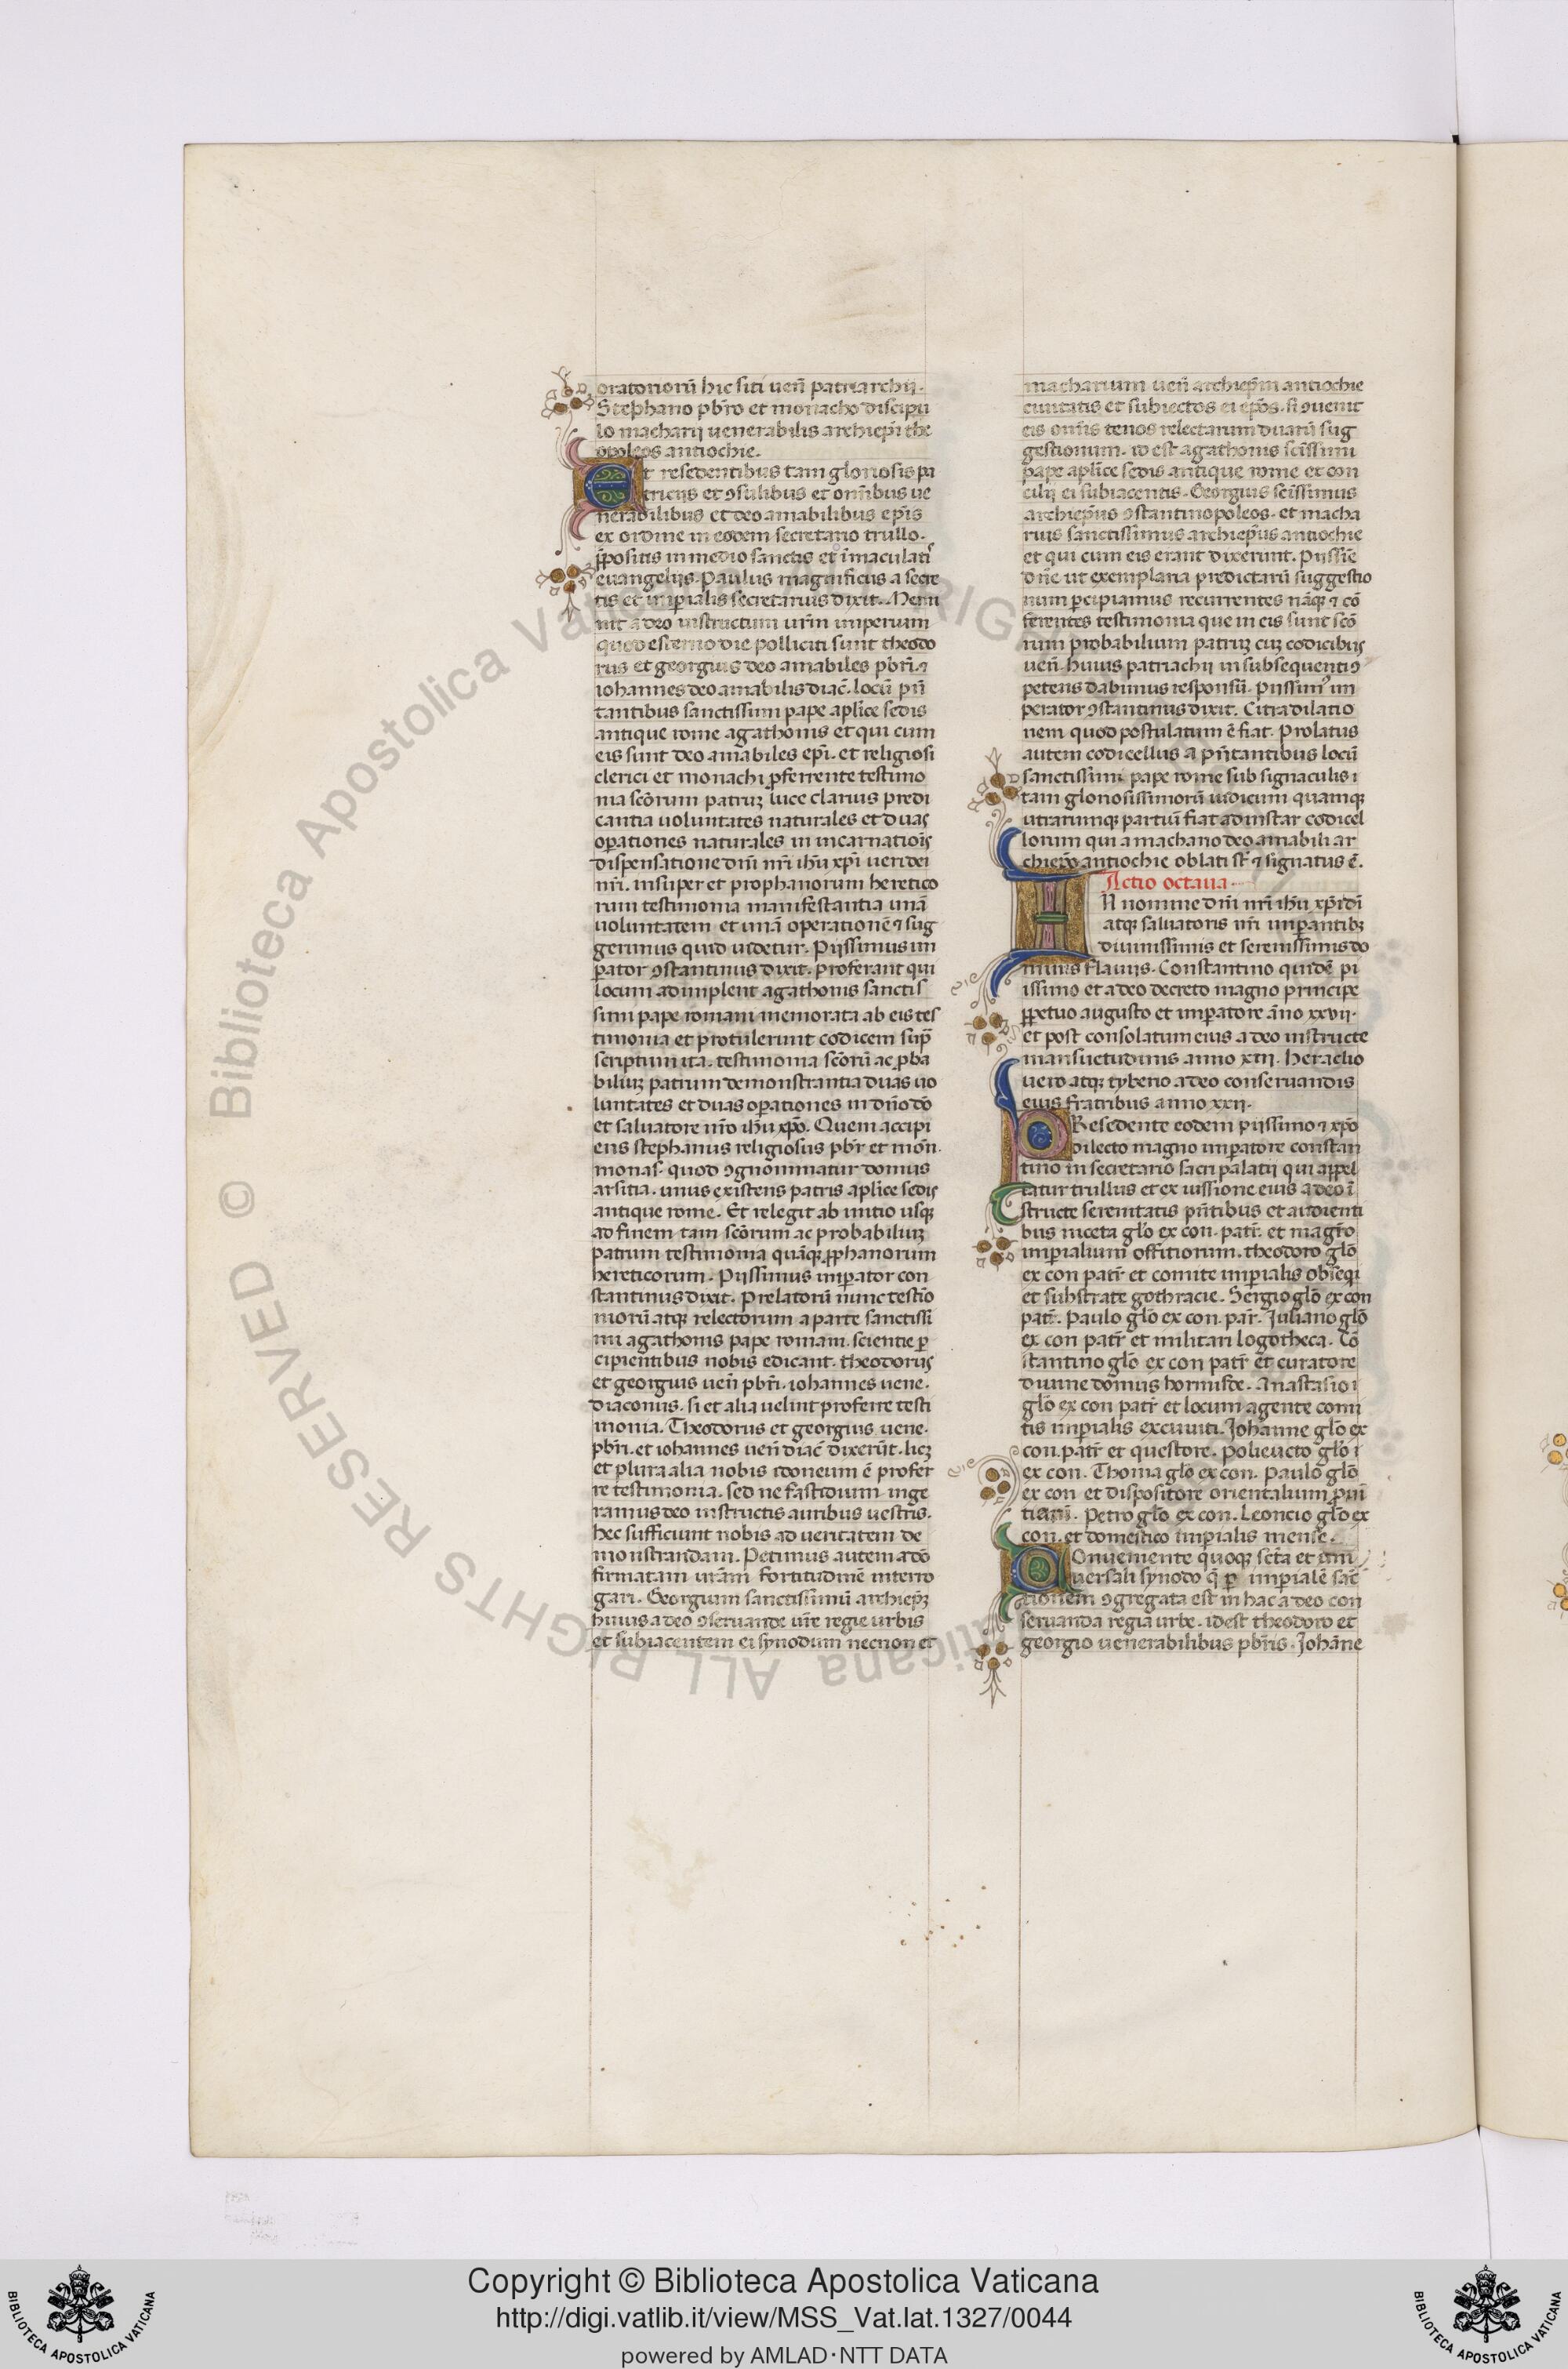 oratoriorū hic siti ueñ patriarchij.
Stephano pb̄ro et monacho discipu
lo macharij uenerabilis archiepi̅ the
opoleos antiochie.
Et residentibus tam gloriosis pa
tricijs et ꝯsulibus et om̅ibus ue
nerabilibus et deo amabilibus ep̅is
ex ordine in eodem secretario trullo.
ꝓpositis in medio sanctis et i̅maculati
euangelijs. Paulus magnificus a secre
tis et imp̅ialis secretarius dixit. Memi
nit a deo instructum ur̅m imperium
quod esterno die polliciti sunt theodo
rus et georgius deo amabiles pb̅ri. ⁊
iohannes deo amabilis diac̅. locū pn̅
tantibus sanctissimi pape aplice sedis
antique rome agathonis et qui cum
eis sunt deo amabiles ep̅i. et religiosi
clerici et monachi ꝓferrente testimo
nia sc̅orum patruꝫ luce clarius predi
cantia uoluntates naturales et duas
oꝑationes naturales in incarnatio̅is
dispensatione dn̅i nr̅i ih̅u xp̅i ueri dei
nr̅i. insuper et prophanorum heretico
rum testimonia manifestantia unā
uoluntatem et unā operationē ⁊ sug
gerimus quid uidetur. Piissimus im
ꝑator ꝯstantinus dixit. proferant qui
locum adimplent agathonis sanctis
simi pape romani memorata ab eis tes
timonia et protulerunt codicem sup̅
scriptum ita. testimonia sc̅orū ac ꝓba
biliuꝫ patrum demonstrantia duas uo
luntates et duas oꝑationes in dn̅o dō
et saluatore nr̅o ih̅u xp̅o. Quem accipi
ens stephanus religiosus pb̅r et mon̅.
monas. quod ꝯgnominatur domus
arsitia. unus existens patris aplice sedis
antique rome. Et relegit ab initio usqꝫ
ad finem tam sc̅orum ac probabiliuꝫ
patrum testimonia quāqꝫ ꝓphanorum
hereticorum. Piissimus imꝑator con
stantinus dixit. Prelatorū nunc testio
moru̅ atqꝫ relectorum a parte sanctissi
mi agathonis pape romani. scientie ꝑ
cipientibus nobis edicant. theodorus
et georgius uen̅ pb̅ri. iohannes uene.
diaconus. si et alia uelint proferre testi
monia. Theodorus et georgius uene.
pb̅ri. et iohannes uen̅ diac̅ dixerūt. licꝫ
et plura alia nobis idoneum ē profer
re testimonia. sed ne fastidium inge
ramus deo instructis auribus uestris.
hec sufficiunt nobis ad ueritatem de
monstrandam. Petimus autem a dō
firmatam ur̅am fortitudinē interro
gari. Georgium sanctissimū archiep̅ꝫ
huius a deo ꝯseruande ur̅e regie urbis
et subiacentem ei synodum necnon et
macharium uen̅ archiep̅m antiochie
ciuitatis et subiectos ei ep̅os. si ꝯuenit
eis om̅is tenos relectarum duarū sug
gestionum. id est agathonis sc̅issimi
pape aplice sedis antique rome et con
cilij ei subiacentis. Georgius sc̅issimus
archiep̅us ꝯstantinopoleos. et macha
rius sanctissimus archiep̅us antiochie
et qui cum eis erant dixerunt. Piissi̅e
dn̅e ut exemplaria predictarū suggestio
num ꝑcipiamus recurrentes nāqꝫ ⁊ cō
ferentes testimonia que in eis sunt sc̅o
rum probabilium patruꝫ cuꝫ codicibus
uen̅. huius patriachij in subsequenti ꝯ
petens dabimus responsū. Piissimꝰ im
perator ꝯstantinus dixit. Citra dilatio
nem quod postulatum ē fiat. Prolatus
autem codicellus a pn̅tantibus locū
sanctissimi pape rome sub signaculis
tam gloriosissimorū iudicum quamqꝫ
utrarumqꝫ partiū fiat ad instar codicel
lorum qui a machario deo amabili ar
chiep̅o antiochie oblati st̅ ⁊ signatus ē.
Actio octaua.
IN nomine dn̅i nr̅i ih̅u xp̅i dei
atqꝫ saluatoris nr̅i imꝑantibꝫ
diuinissimis et serenissimis do
minis flauijs. Constantino quidē pi
issimo et a deo decreto magno principe
ꝑpetuo augusto et imꝑatore āno xxvii.
et post consolatum eius a deo instructe
mansuetudinis anno xiii. heraclio
uero atqꝫ tyberio a deo conseruandis
eius fratribus anno xxii.
PResedente eodem piissimo ⁊ xp̅o
dilecto magno imꝑatore constan
tino in secretario sacri palatij qui appel
latur trullus et ex iussione eius a deo ī
structe serenitatis pn̅tibus et audienti
bus niceta glo̅ ex con. patr̅. et magr̅o
imꝑialium offitiorum. theodoro glo̅
ex con patr̅ et comite imꝑialis obsequi
et substrate gothracie. Sergio glo̅ ex con
patr̅. Paulo glo̅ ex con. par̅. Iuliano glo̅
ex con patr̅ et militari logotheca. Cō
stantino glo̅ ex con patr̅ et curatore
diuine domus hormisde. Anastasio
glo̅ ex con patr̅ et locum agente comi
tis imꝑialis excuuiti. Johanne glo̅ ex
con. patr̅ et questore. Polieucto glo̅
ex con. Thoma glo̅ ex con. Paulo glo̅
ex con et dispositore orientalium ꝓui̅
tiarū. Petro glo̅ ex con. Leoncio glo̅ ex
con. et domestico imꝑialis mense.
COnueniente quoqꝫ sc̅ta et uni
uersali synodo q̅ ꝑ imꝑialē sac̅
tionem ꝯgregata est in hac a deo con
seruanda regia urbe. idest theodoro et
georgio uenerabilibus pb̅ris. Joha̅ne
© Biblioteca Apostolica Vaticana ALL RIGHTS RESERVED
Copyright © Biblioteca Apostolica Vaticana
http://digi.vatlib.it/view/MSS_Vat.lat.1327/0044
powered by AMLAD·NTT DATA
BIBLIOTECA APOSTOLICA VATICANA
BIBLIOTECA APOSTOLICA VATICANA